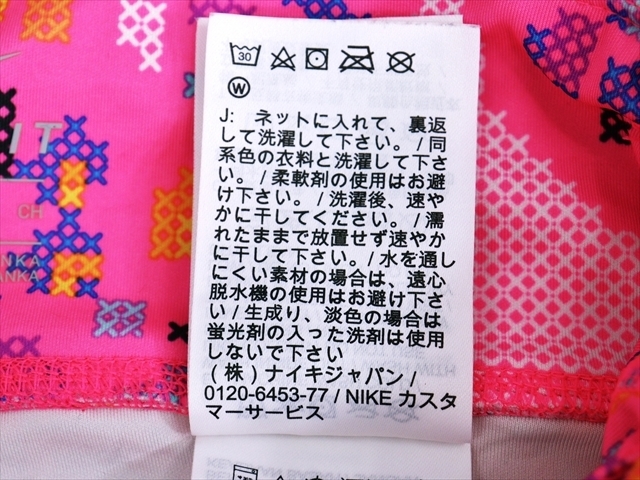 30
W
J: ネットに入れて、裏返
して洗濯して下さい。 / 同
系色の衣料と洗濯して下さ
い。 / 柔軟剤の使用はお避
け下さい。 / 洗濯後、速や
かに干してください。 / 濡
れたままで放置せず速やか
に干して下さい。 / 水を通し
にくい素材の場合は、遠心
脱水機の使用はお避け下さ
い / 生成り、淡色の場合は
蛍光剤の入った洗剤は使用
しないで下さい
(株) ナイキジャパン /
0120-6453-77 / NIKE カスタ
マーサービス
CH
ANKA
ANKA